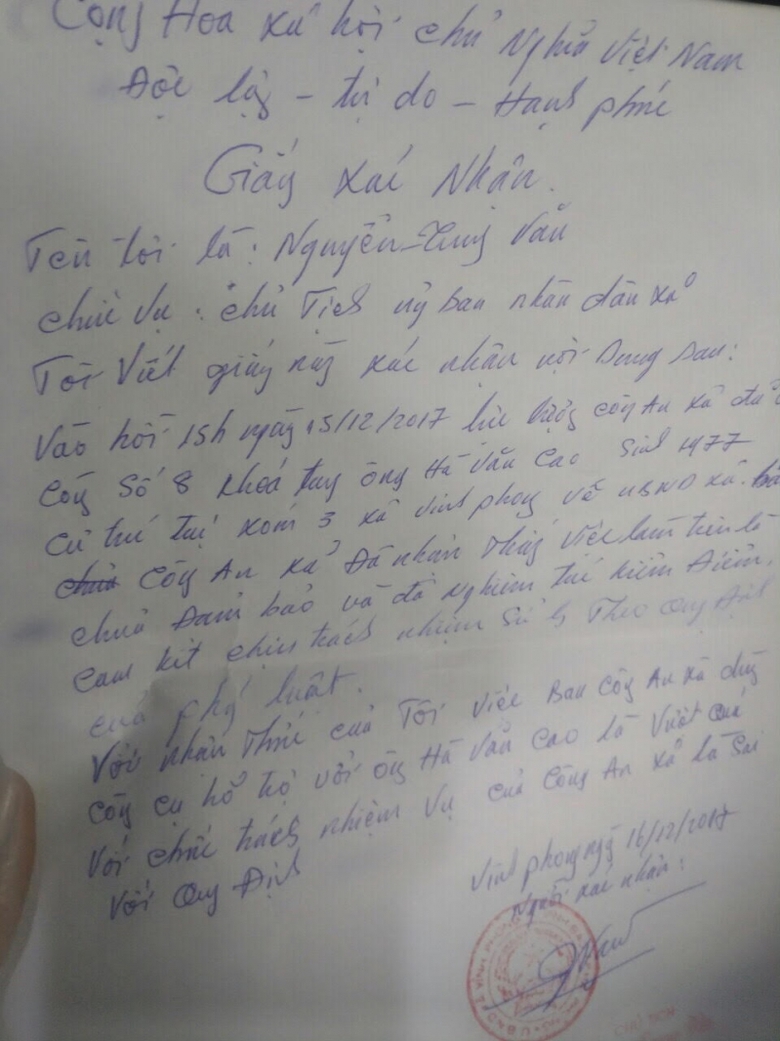 Cộng Hoà xã hội chủ Nghĩa Việt Nam
Độc lập - tự do - Hạnh phúc
Giấy xác Nhận.
Tên tôi là: Nguyễn Văn
chức vụ: chủ Tịch uỷ ban nhân dân xã
Tôi Viết giấy này xác nhận nội Dung sau:
Vào hồi 15h ngày 15/12/2017 lực lượng công An xã đã
Còng Số 8 khoá tay ông Hà Văn Cao Sinh 1977
Cư trú tại xóm 3 xã Vinh phong về UBND xã.
Công An xã Đã nhận Thấy Việc làm trên là
chưa Đảm bảo và đã nghiêm túc kiểm Điểm,
Cam kết chịu trách nhiệm Theo Quy Định
của pháp luật.
Với nhận Thức của Tôi Việc Ban Công An xã dùng
Công cụ hỗ trợ với ông Hà Văn Cao là Vượt Quá
Với chức trách nhiệm Vụ của Công An xã là Sai
Với Quy Định
Vinh phong ngày 16/12/2017
Người xác nhận:
CHỦ TỊCH